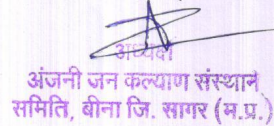 अध्यक्ष
अंजनी जन कल्याण संस्थान
समिति, बीना जि. सागर (म.प्र.)